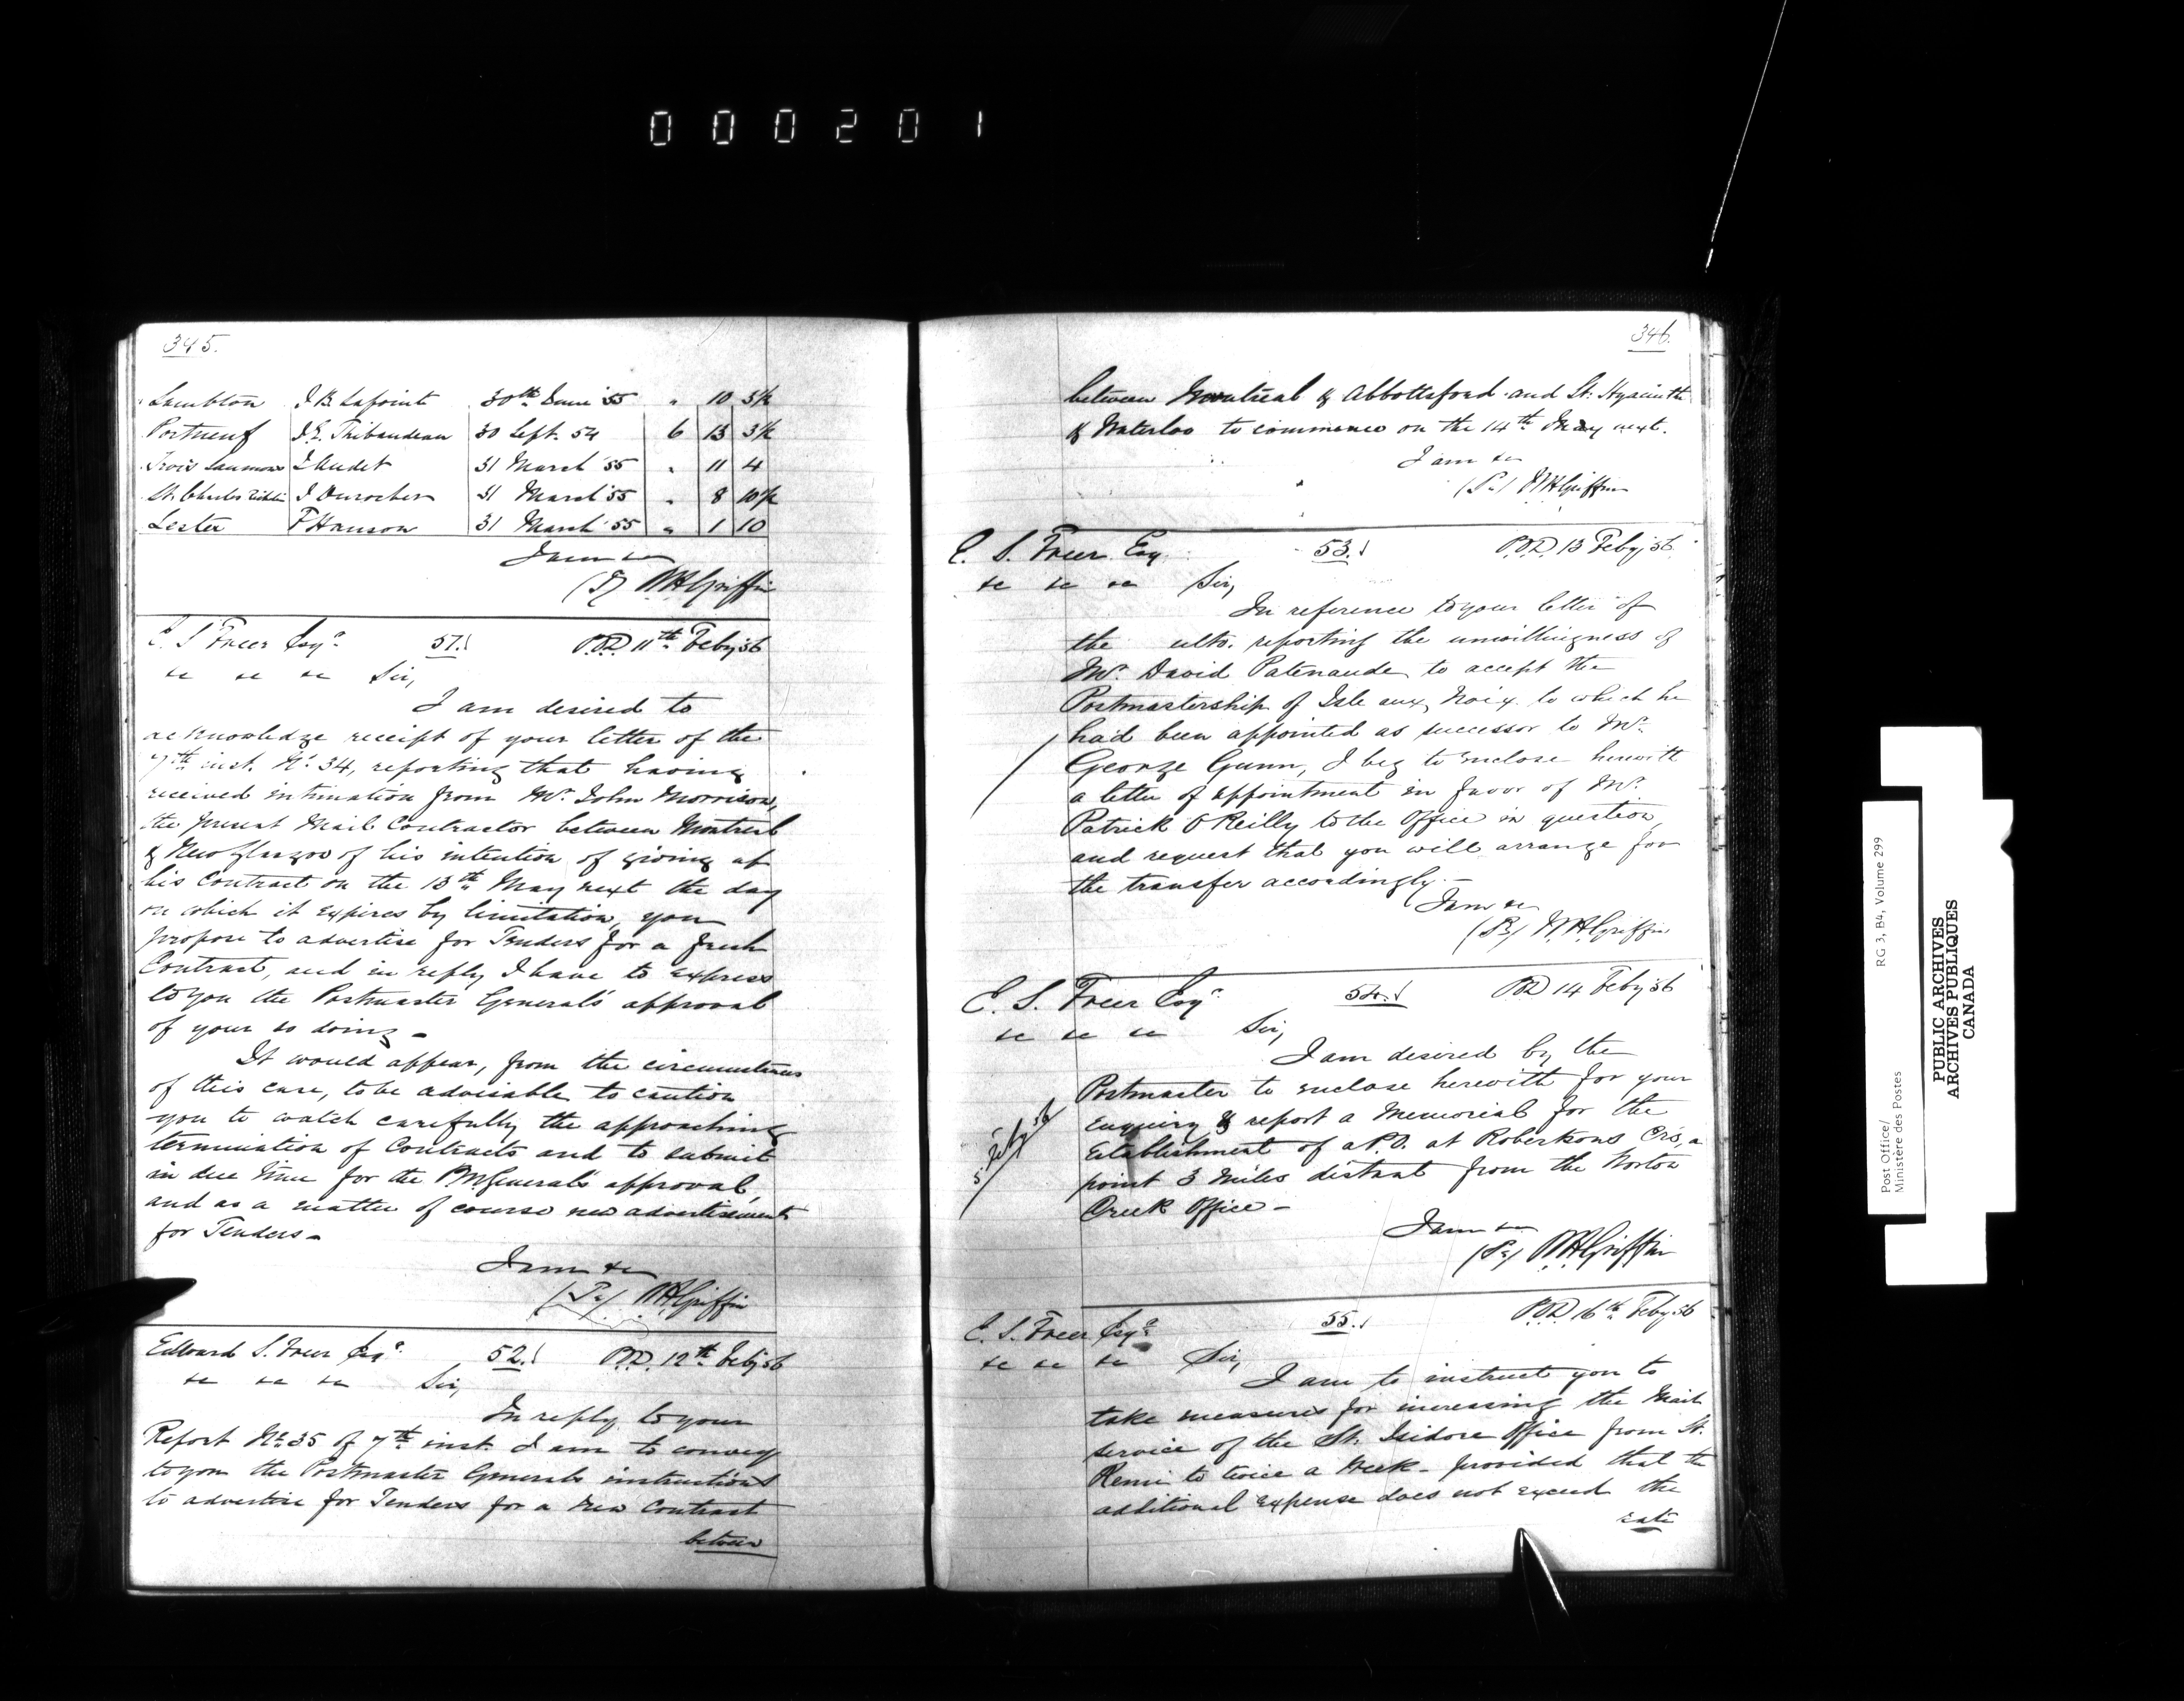 000201
345.
Lambton J B. Lapointe 30th June 55 " 10 5½
Portneuf J. E. Thibaudeau 30 Sept. 54 6 13 3½
Trois Saumons L Audet 31 March 55 " 11 4
St. Charles J Durocher 31 March 55 " 8 10½
Lester F Hanson 31 March 55 " 1 10
I am &c
W H Griffin
E. S Freer Esqr. 51. P.O.D 11th Feby 56
&c &c &c Sir,
I am desired to
acknowledge receipt of your letter of the
7th inst. No. 34, reporting that having
received intimation from Mr. John Morrison,
the present Mail Contractor between Montreal
& New Glasgow of his intention of giving up
his Contract on the 13th May next the day
on which it expires by limitation, you
propose to advertise for Tenders for a fresh
Contract, and in reply I have to express
to you the Postmaster General's approval
of your so doing -
It would appear, from the circumstances
of this case, to be advisable to caution
you to watch carefully the approaching
termination of Contracts and to submit
in due time for the P.M. General's approval,
and as a matter of course new advertisements
for Tenders -
I am &c
W H Griffin
Edward S. Freer Esqr. 52. P.O.D. 12th Feby 56
&c &c &c Sir,
In reply to your
Report No. 35 of 7th inst. I am to convey
to you the Postmaster Generals instructions
to advertise for Tenders for a New Contract
between
346.
between Montreal & Abbottsford and St. Hyacinthe
& Waterloo to commence on the 14th May next.
I am &c
W H Griffin
E. S. Freer Esq. 53. P.O.D. 13 Feby 56
&c &c &c Sir,
In reference to your letter of
the ulto. reporting the unwillingness of
Mr. David Patenaude to accept the
Postmastership of Isle aux Noix to which he
had been appointed as successor to Mr.
George Gunn, I beg to enclose herewith
a letter of appointment in favor of Mr.
Patrick O Reilly to the Office in question,
and request that you will arrange for
the transfer accordingly. -
I am &c
W. H. Griffin
E. S. Freer Esqr. 54. P.O.D 14 Feby 56
&c &c &c Sir,
I am desired by the
Postmaster to enclose herewith for your
enquiry & report a Memorial for the
establishment of a P.O. at Robertsons Crs, a
point 3 Miles distant from the Norton
Creek Office -
I am &c
W H Griffin
E. S. Freer Esqr. 55. P.O.D 16th Feby 56
&c &c &c Sir,
I am to instruct you to
take measures for increasing the Mail
service of the St. Isidore Office from St.
Remi to twice a Week - provided that the
additional expense does not exceed the
rate
Post Office/ RG 3, B4, Volume 299
Ministère des Postes
PUBLIC ARCHIVES
ARCHIVES PUBLIQUES
CANADA